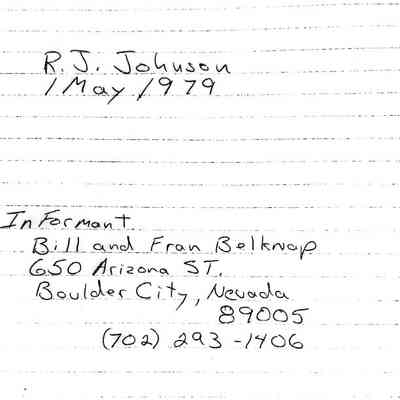 R. J. Johnson
1 May 1979
Informant
Bill and Fran Belknap
650 Arizona ST.
Boulder City, Nevada
89005
(702) 293-1406